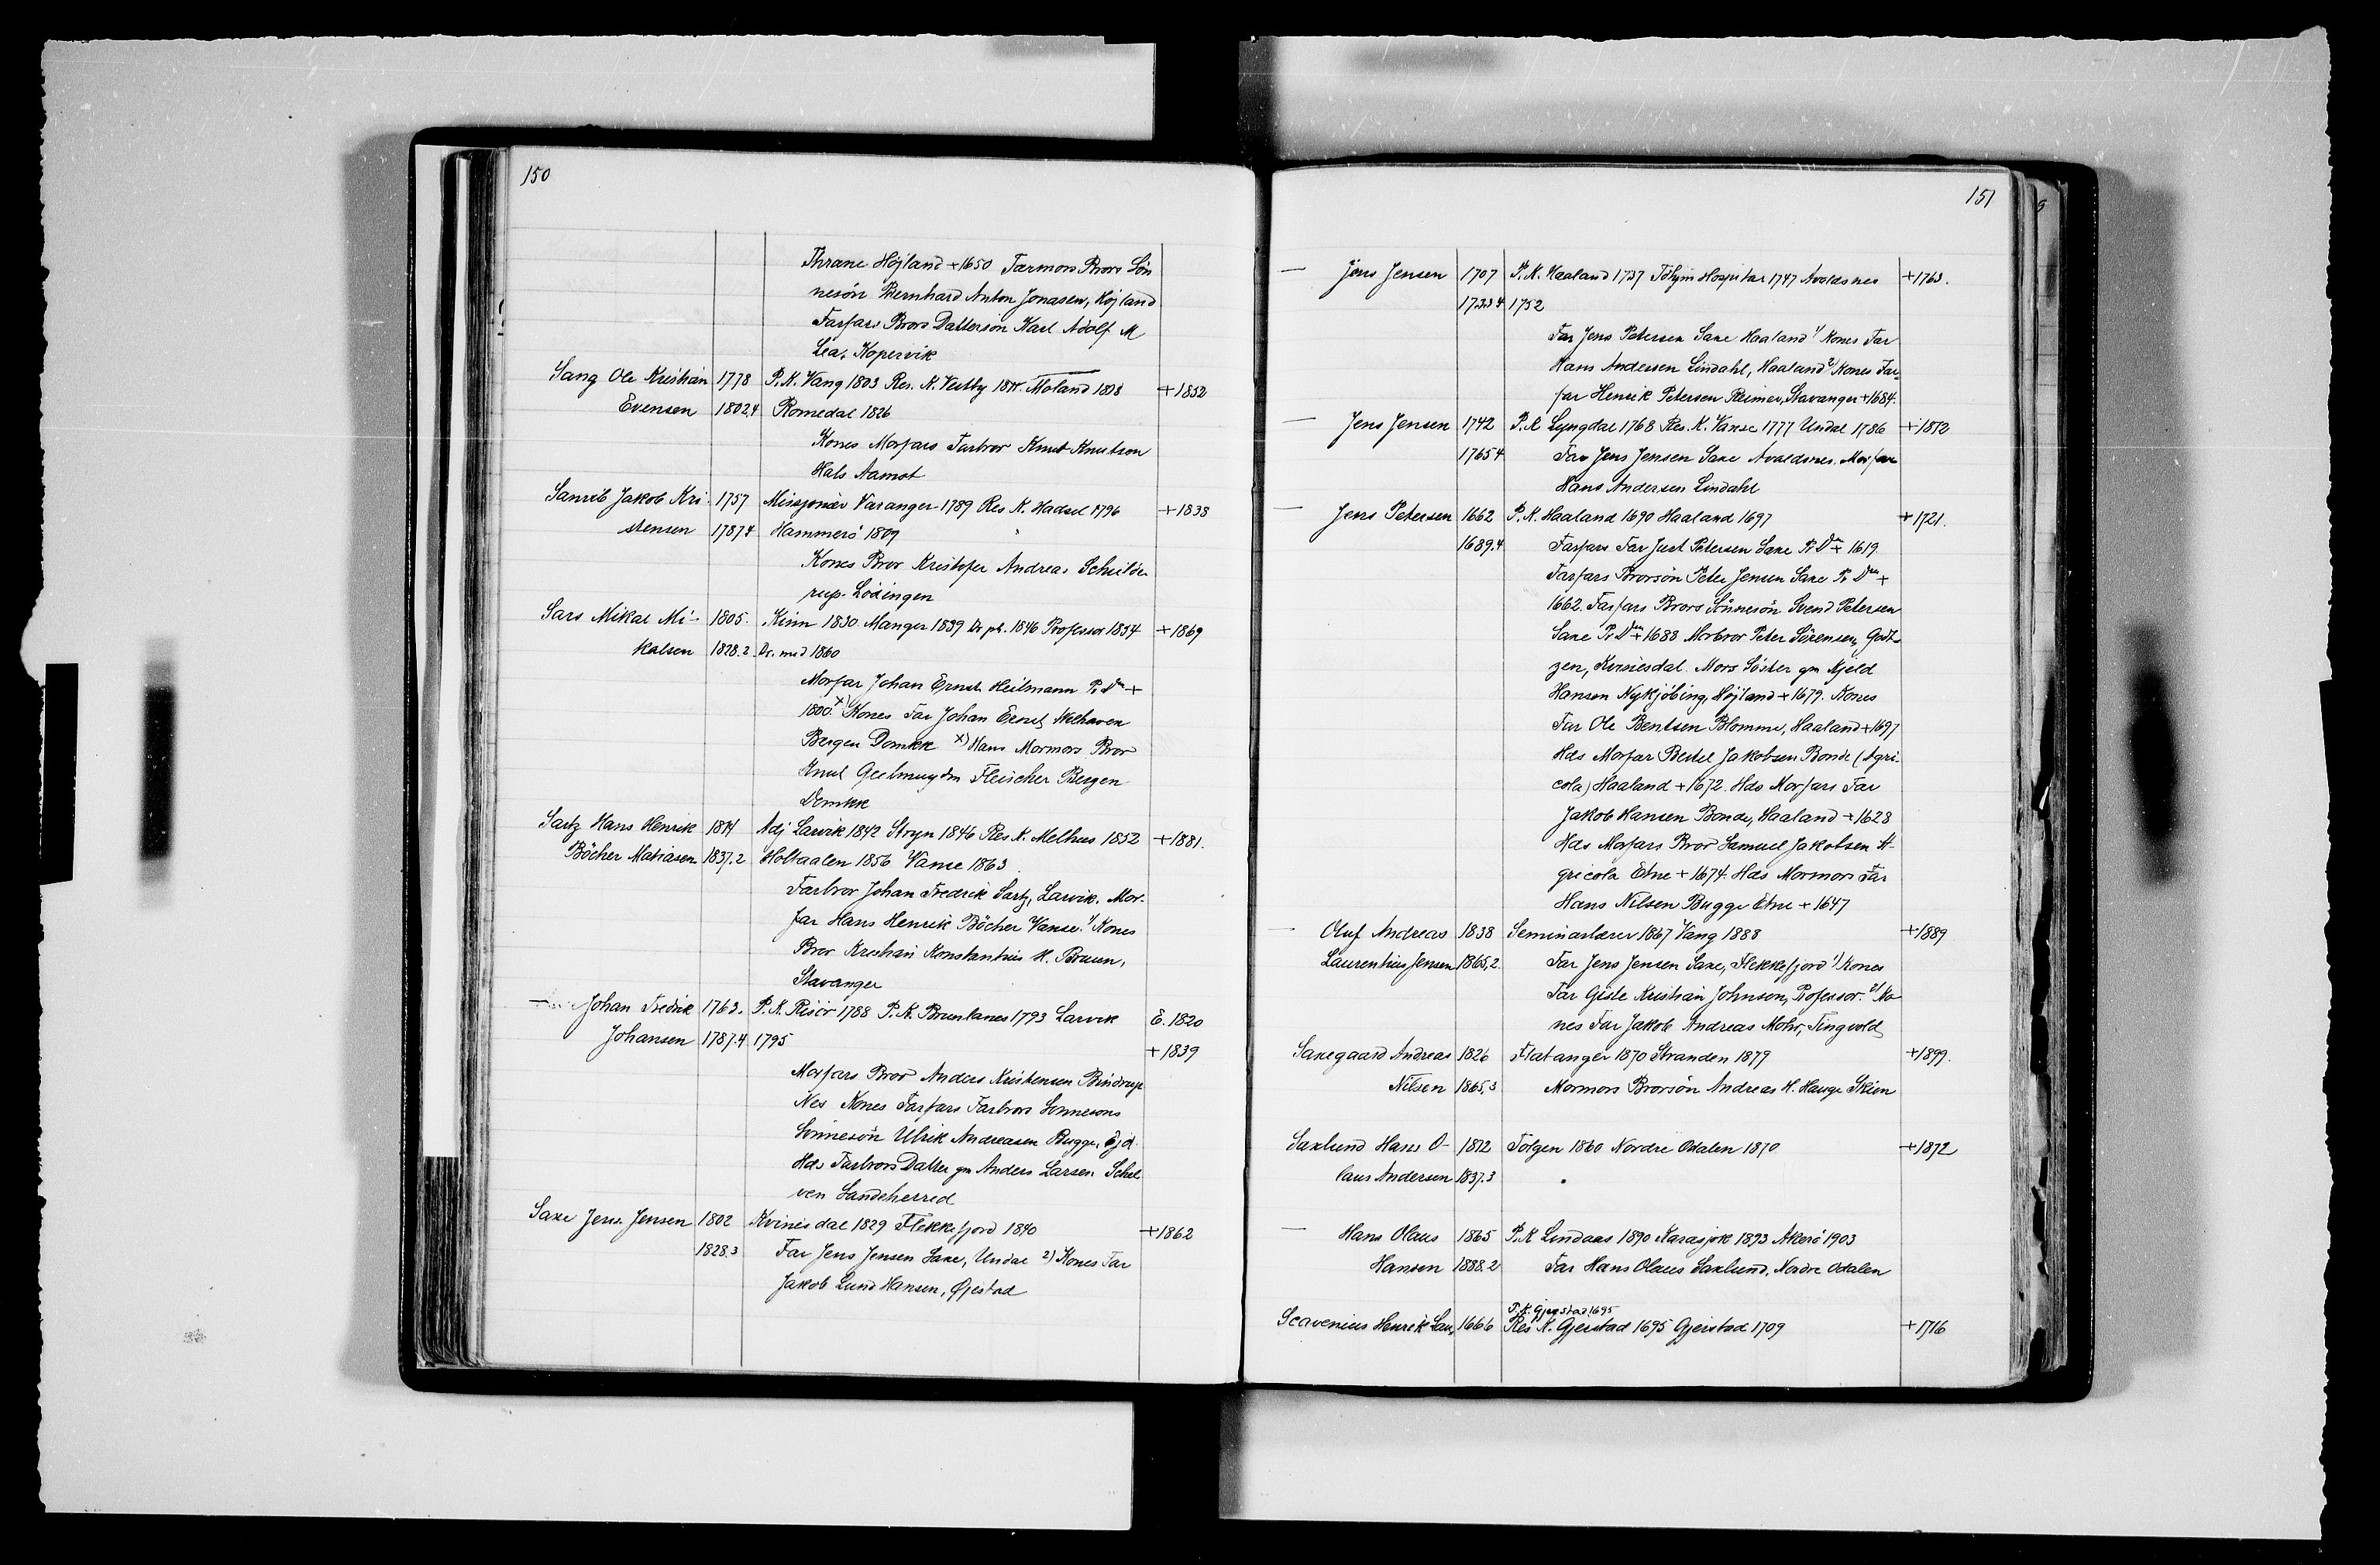 150
Thrane Höjland +1650 Farmors Brors Sön
nesön Bernhard Anton Jonassen, Höjland
Farfars Brors Dattersön Karl Adolf M
Lea, Kopervik
Sang Ole Kristian 1778 P.K. Vang 1803 Res. K. Vestby Moland 1808 +1852
Evensen 1802,4 Romedal 1826
Kones Morfars Farbror Knut Knutson
Hals Aamot
Jakob Kri- 1757 Missjonær Varanger 1789 Res K. Hadsel 1796 +1838
stensen 1787,4 Hammerö 1809
Kones Bror Kristofer Andreas Schilde
rup Lödingen
Sars Mikal Mi- 1805. Kinn 1830 Manger 1839 Dr ph. 1846 Professor 1854 +1869
kalsen 1828.2 Dr. med 1860
Morfar Johan Ernst Heilmann P. +
1800. x) Kones Far Johan Ernst Welhaven
Bergen Domkk x) Hans Mormors Bror
Knut Geelmuyden Fleischer Bergen
Domkk
Sartz Hans Henrik 1814 Adj Larvik 1842 Stryn 1846 Res K. Melhus 1852 +1881.
Böcher Matiasen 1837.2 Holtaalen 1856 Vanse 1863
Farbror Johan Fredrik Sartz, Larvik. Mor-
far Hans Henrik Böcher Vanse. 1) Kones
Bror Kristian Konstantius H. Bruun,
Stavanger
— Johan Fredrik 1763. P.K. Risör 1788 P.K. Brunlanes 1793 Larvik E. 1820
Johansen 1787.4 1795 +1839
Morfars Bror Anders Kristensen Bindrup
Nes Kones Farfars Farbrors Sönnesöns
Sönnesön Ulrik Andreasen Bugge,
Hds Farbrors Datter gm Anders Larsen Schel
ven Sandeherred
Saxe Jens Jensen 1802 Kvinesdal 1829 Flekkefjord 1840 +1862
1828.3 Far Jens Jensen Saxe, Undal 2) Kones Far
Jakob Lund Hansen, Øjestad
151
— Jens Jensen 1707 P.K. Haaland 1737 Hospital 1747 Avaldsnes +1763.
1733.4 1752
Far Jens Petersen Saxe Haaland 1) Kones Far
Hans Andersen Lindahl, Haaland 2) Kones Far-
far Henrik Petersen Reimer, Stavanger +1684.
— Jens Jensen 1742 P.K Lyngdal 1768 Res. K. Vanse 1777 Undal 1786 +1812
1765 4 Far Jens Jensen Saxe Avaldsnes. Morfar
Hans Andersen Lindahl
— Jens Petersen 1662 P.K. Haaland 1690 Haaland 1697 +1721.
1689.4 Farfars Far Just Petersen Saxe P. + 1619.
Farfars Brorsön Peter Jensen Saxe P. +
1662. Farfars Brors Sönnesön Svend Petersen
Saxe P. +1688 Morbror Peter Sörensen, Godt-
zen, Kvinesdal. Mors Söster gm Kjeld
Hansen Nykjöbing, Höjland +1679. Kones
Far Ole Bentsen Blomme, Haaland +1697
Hds Morfar Bertel Jakobsen Bonde (Agri-
cola) Haaland +1672. Hds Morfars Far
Jakob Hansen Bonde, Haaland +1628
Hds Morfars Bror Samuel Jakobsen A-
gricola Etne +1674. Hds Mormors Far
Hans Nilsen Bugge Etne +1647
— Oluf Andreas 1838 Seminarlærer 1867 Vang 1888 +1889
Laurentius Jensen 1865,2. Far Jens Jensen Saxe, Flekkefjord 1) Kones
Far Gisle Kristian Johnson, Professor. 2) Ko
nes Far Jakob Andreas Mohr, Tingvold
Saxegaard Andreas 1826 Flatanger 1870 Stranden 1879 +1899.
Nilsen 1865,3 Mormors Brorsön Andreas H. Hauge Skien
Saxlund Hans O- 1812 Tolgen 1860 Nordre Odalen 1870 +1872
laus Andersen 1837.3
— Hans Olaus 1865 P.K Lindaas 1890 Karasjok 1893 Akerö 1903
Hansen 1888.2 Far Hans Olaus Saxlund, Nordre Odalen
P.K. Gjerstad 1695
Scavenius Henrik Lau, 1666 Res K. Gjerstad 1695 Gjerstad 1709 +1716